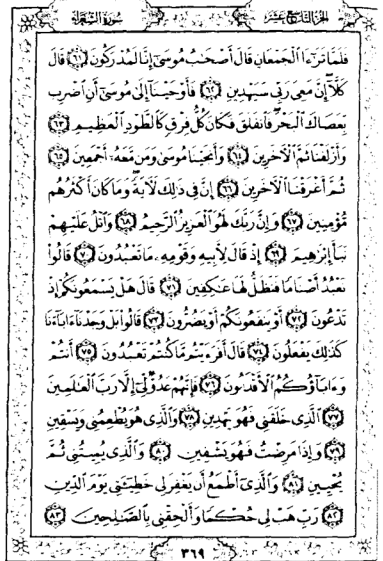 الجزء التاسع عشر سورة الشعراء
فَلَمَّا تَرَٰٓءَا ٱلْجَمْعَانِ قَالَ أَصْحَٰبُ مُوسَىٰٓ إِنَّا لَمُدْرَكُونَ ٦١ قَالَ
كَلَّآ إِنَّ مَعِىَ رَبِّى سَيَهْدِينِ ٦٢ فَأَوْحَيْنَآ إِلَىٰ مُوسَىٰٓ أَنِ ٱضْرِب
بِّعَصَاكَ ٱلْبَحْرَ فَٱنفَلَقَ فَكَانَ كُلُّ فِرْقٍ كَٱلطَّوْدِ ٱلْعَظِيمِ ٦٣
وَأَزْلَفْنَا ثَمَّ ٱلْءَاخَرِينَ ٦٤ وَأَنجَيْنَا مُوسَىٰ وَمَن مَّعَهُۥٓ أَجْمَعِينَ ٦٥
ثُمَّ أَغْرَقْنَا ٱلْءَاخَرِينَ ٦٦ إِنَّ فِى ذَٰلِكَ لَءَايَةً وَمَا كَانَ أَكْثَرُهُم
مُّؤْمِنِينَ ٦٧ وَإِنَّ رَبَّكَ لَهُوَ ٱلْعَزِيزُ ٱلرَّحِيمُ ٦٨ وَٱتْلُ عَلَيْهِمْ
نَبَأَ إِبْرَٰهِيمَ ٦٩ إِذْ قَالَ لِأَبِيهِ وَقَوْمِهِۦ مَا تَعْبُدُونَ ٧٠ قَالُوا۟
نَعْبُدُ أَصْنَامًا فَنَظَلُّ لَهَا عَٰكِفِينَ ٧١ قَالَ هَلْ يَسْمَعُونَكُمْ إِذْ
تَدْعُونَ ٧٢ أَوْ يَنفَعُونَكُمْ أَوْ يَضُرُّونَ ٧٣ قَالُوا۟ بَلْ وَجَدْنَآ ءَابَآءَنَا
كَذَٰلِكَ يَفْعَلُونَ ٧٤ قَالَ أَفَرَءَيْتُم مَّا كُنتُمْ تَعْبُدُونَ ٧٥ أَنتُمْ
وَءَابَآؤُكُمُ ٱلْأَقْدَمُونَ ٧٦ فَإِنَّهُمْ عَدُوٌّ لِّىٓ إِلَّا رَبَّ ٱلْعَٰلَمِينَ
٧٧ ٱلَّذِى خَلَقَنِى فَهُوَ يَهْدِينِ ٧٨ وَٱلَّذِى هُوَ يُطْعِمُنِى وَيَسْقِينِ
٧٩ وَإِذَا مَرِضْتُ فَهُوَ يَشْفِينِ ٨٠ وَٱلَّذِى يُمِيتُنِى ثُمَّ
يُحْيِينِ ٨١ وَٱلَّذِىٓ أَطْمَعُ أَن يَغْفِرَ لِى خَطِيٓـَٔتِى يَوْمَ ٱلدِّينِ
٨٢ رَبِّ هَبْ لِى حُكْمًا وَأَلْحِقْنِى بِٱلصَّٰلِحِينَ ٨٣
٣٦٩